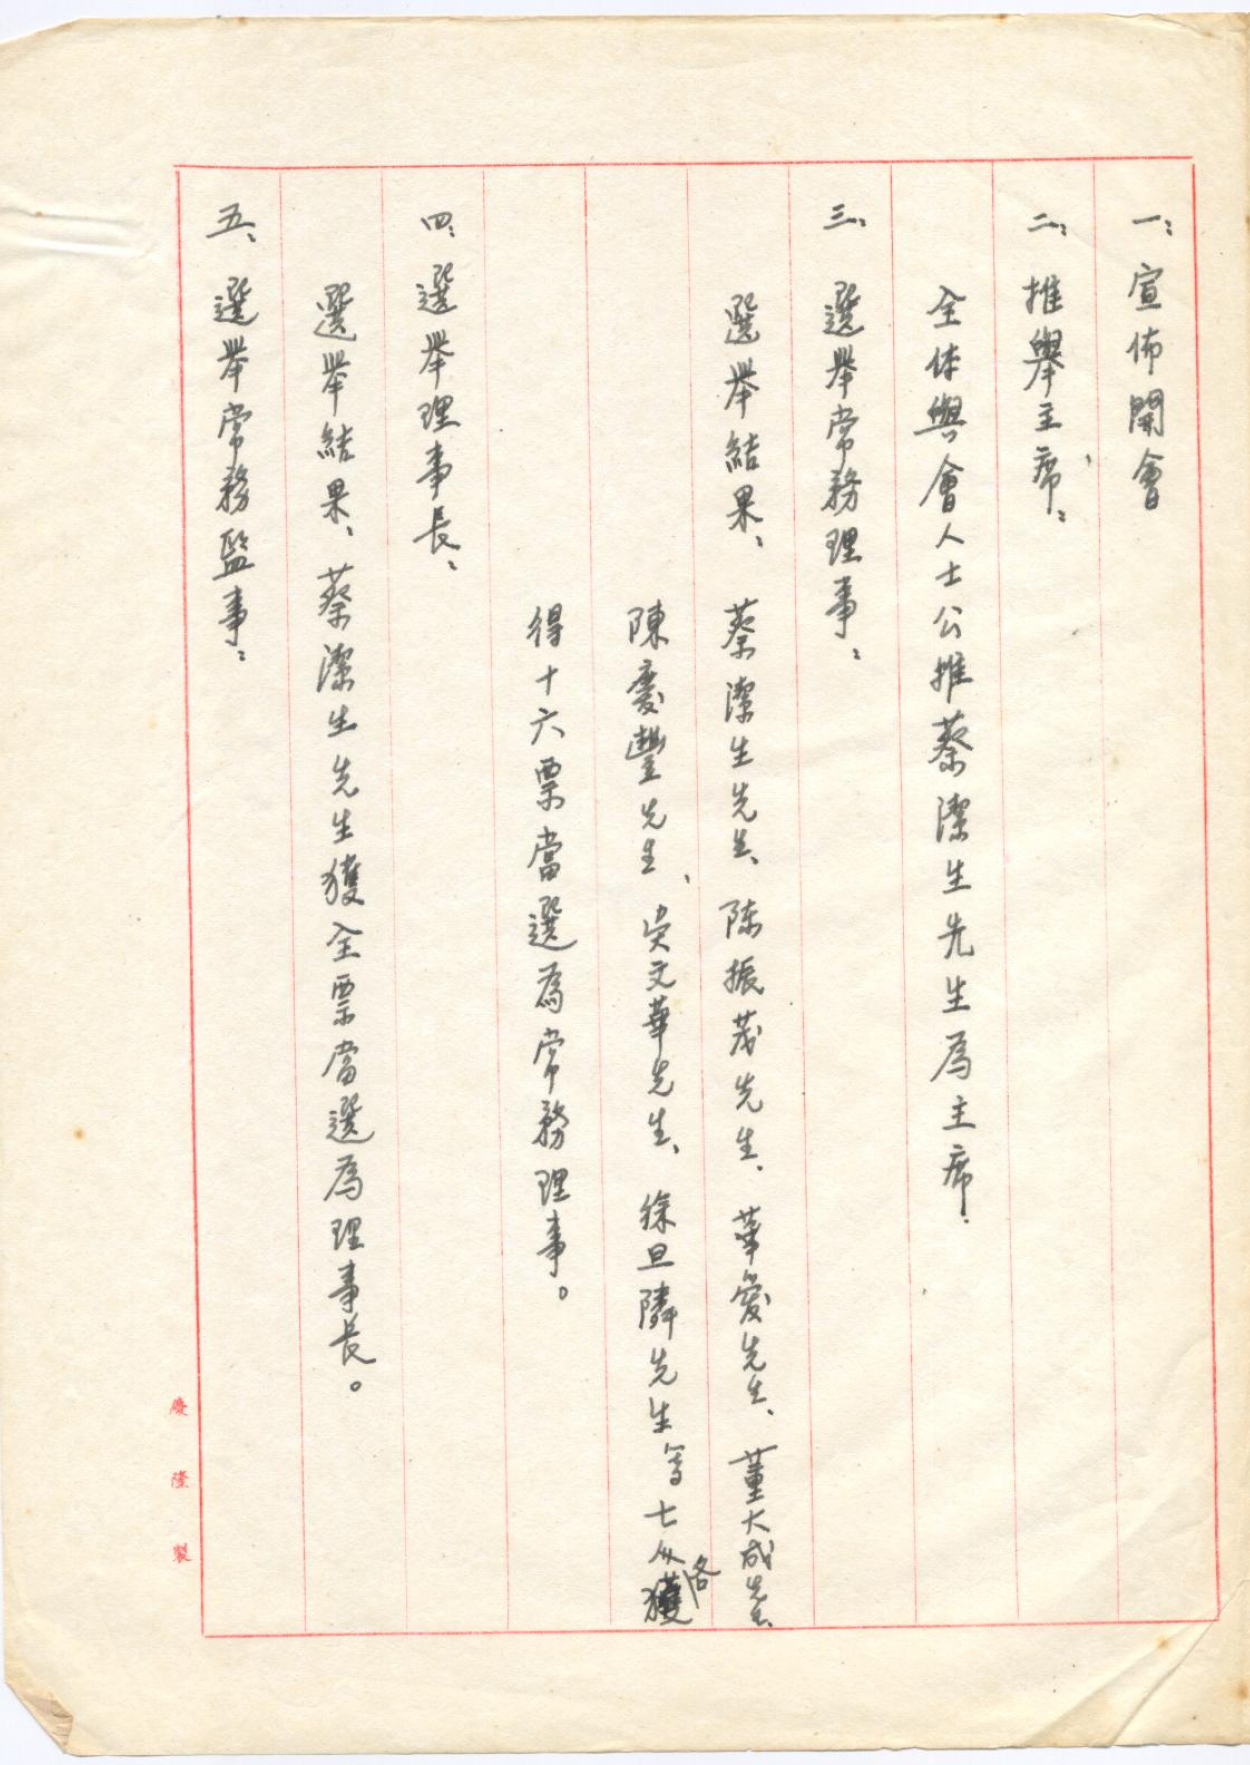 一、宣佈開會
二、推舉主席：
全体與會人士公推蔡潔生先生為主席．
三、選舉常務理事：
選举結果：蔡潔生先生、陈振茂先生、華愛先生、董大成先生、
陳慶豐先生、吳文華先生、徐旦隣先生等七人各獲
得十六票當選為常務理事。
四、選举理事長：
選举結果：蔡潔生先生獲全票當選為理事長。
五、選举常務監事：
慶隆製